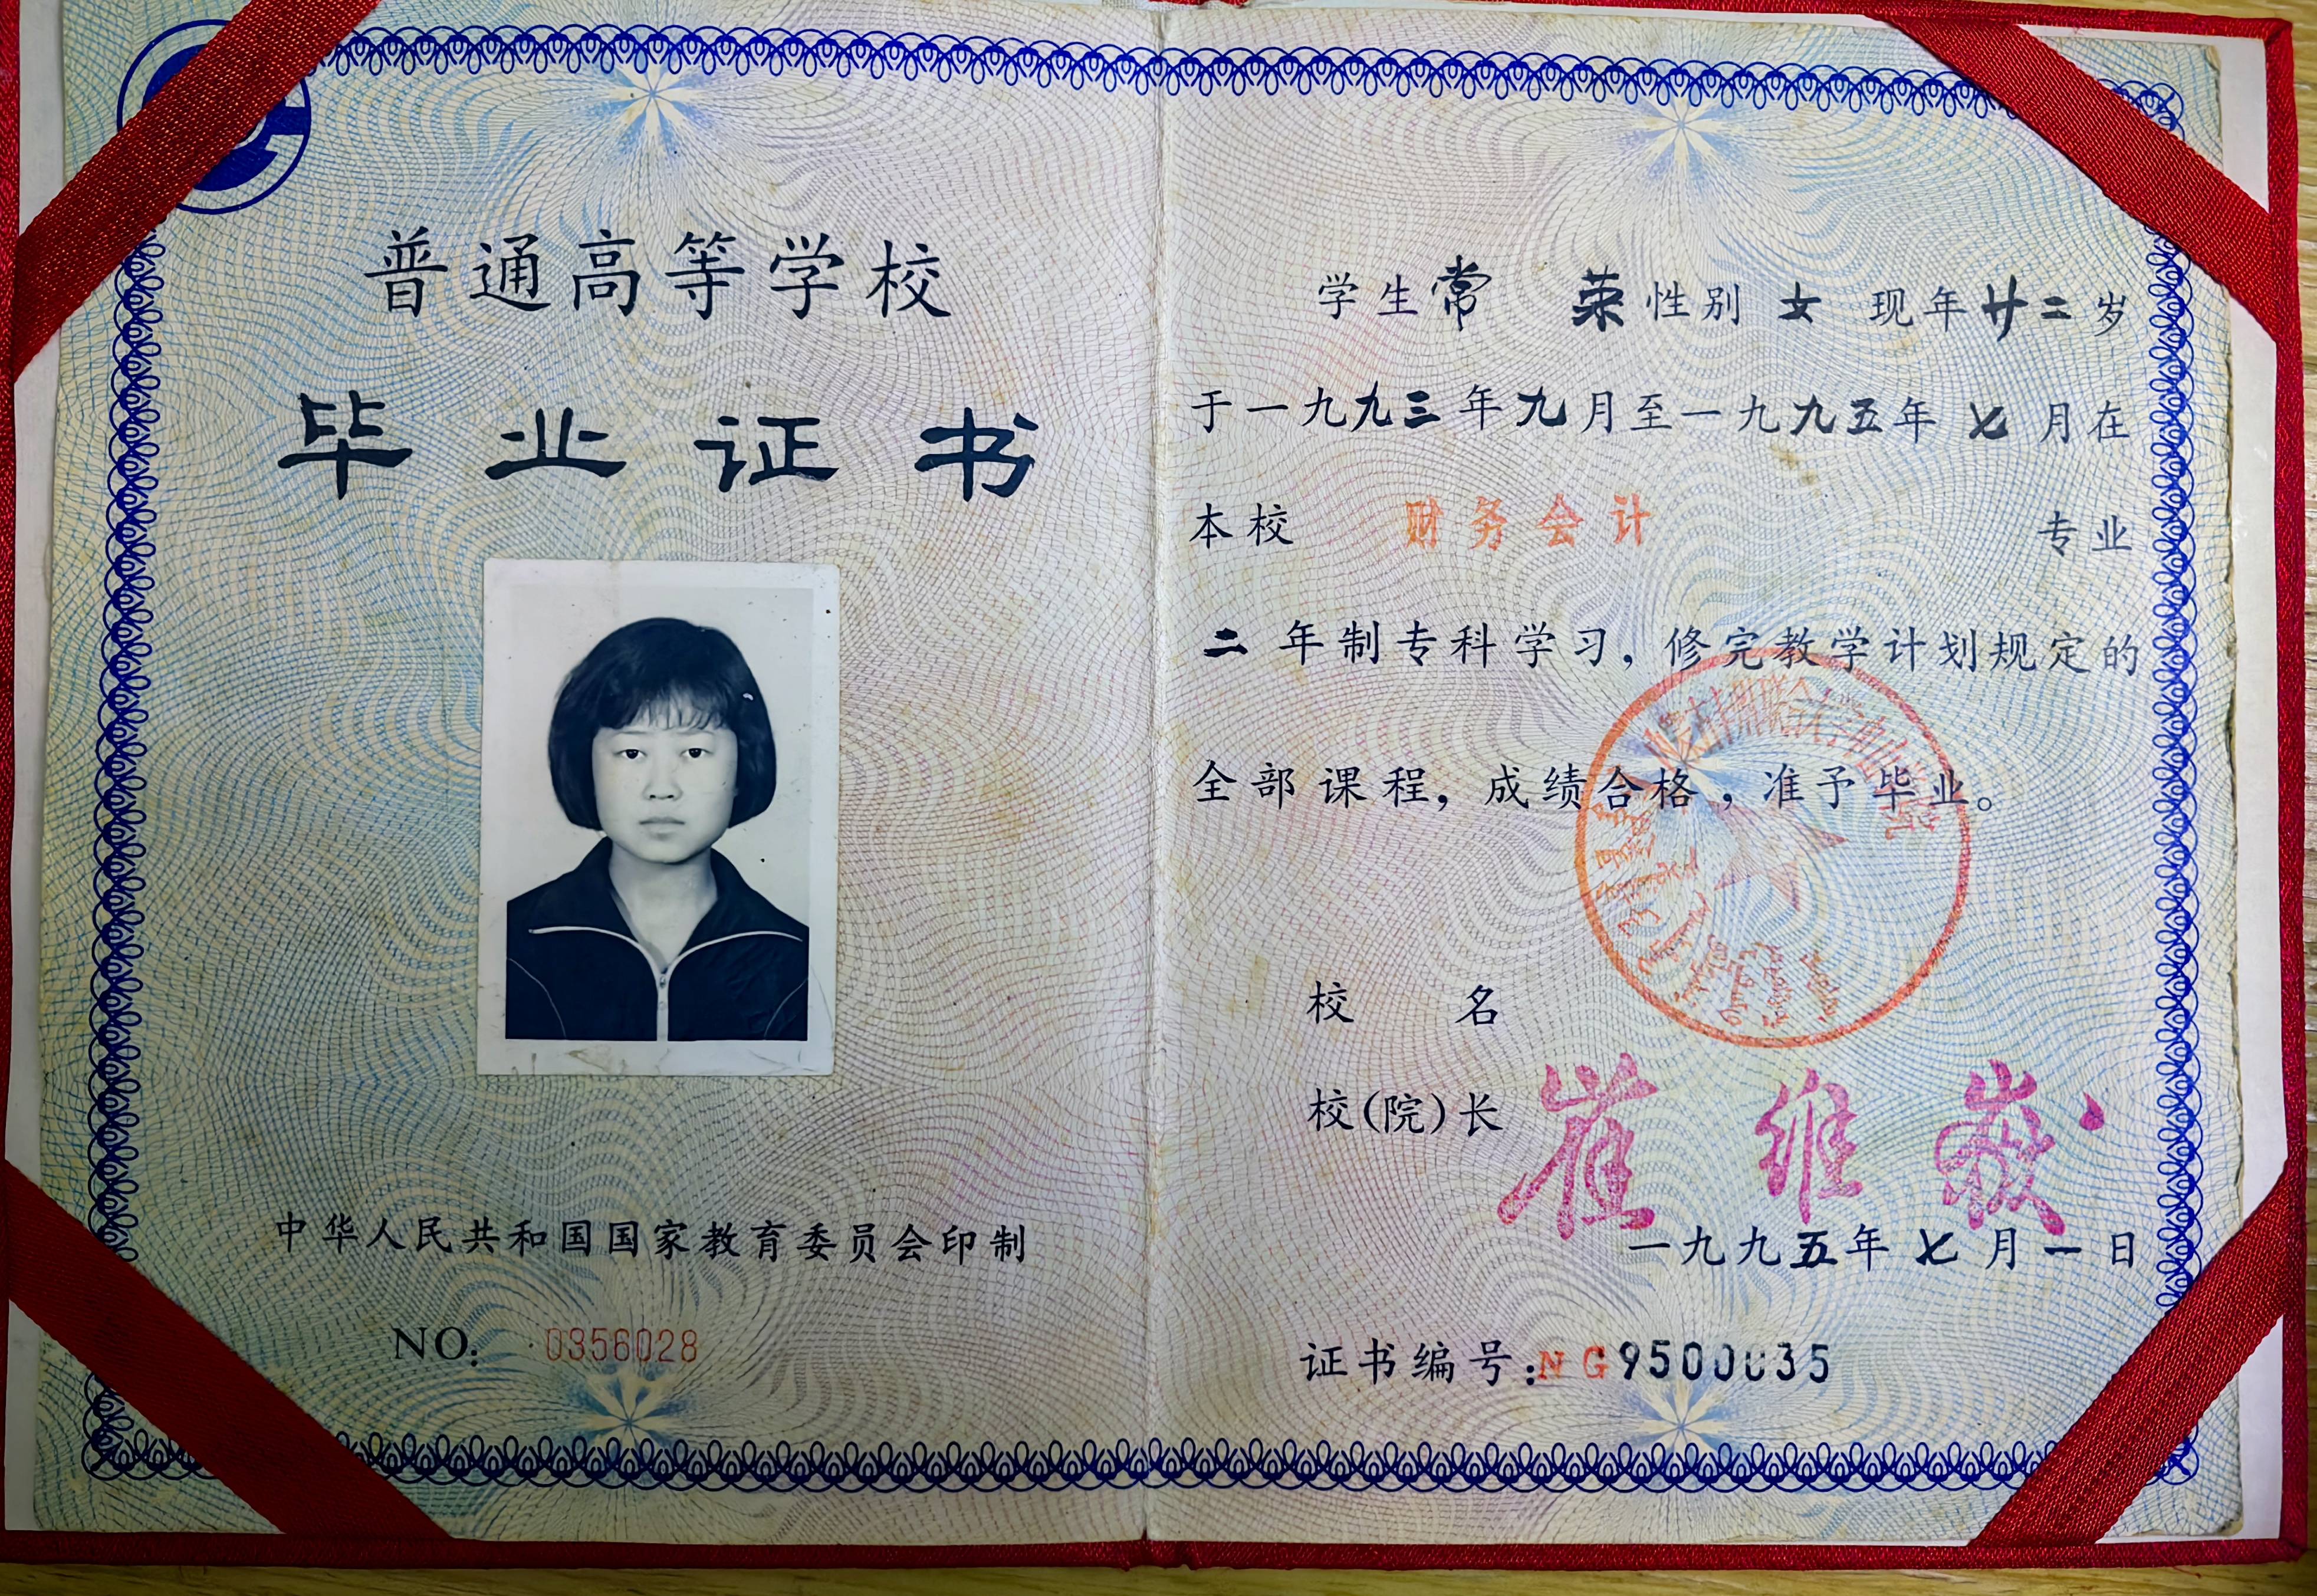 普通高等学校
毕业证书
中华人民共和国国家教育委员会印制
NO: 0356028
学生常 荣性别 女 现年廿二岁
于一九九三年九月至一九九五年 七 月在
本校 财务会计 专业
二 年制专科学习，修完教学计划规定的
全部课程，成绩合格，准予毕业。
校 名
校(院)长 崔维
一九九五年 七 月 一 日
证书编号:NG9500035